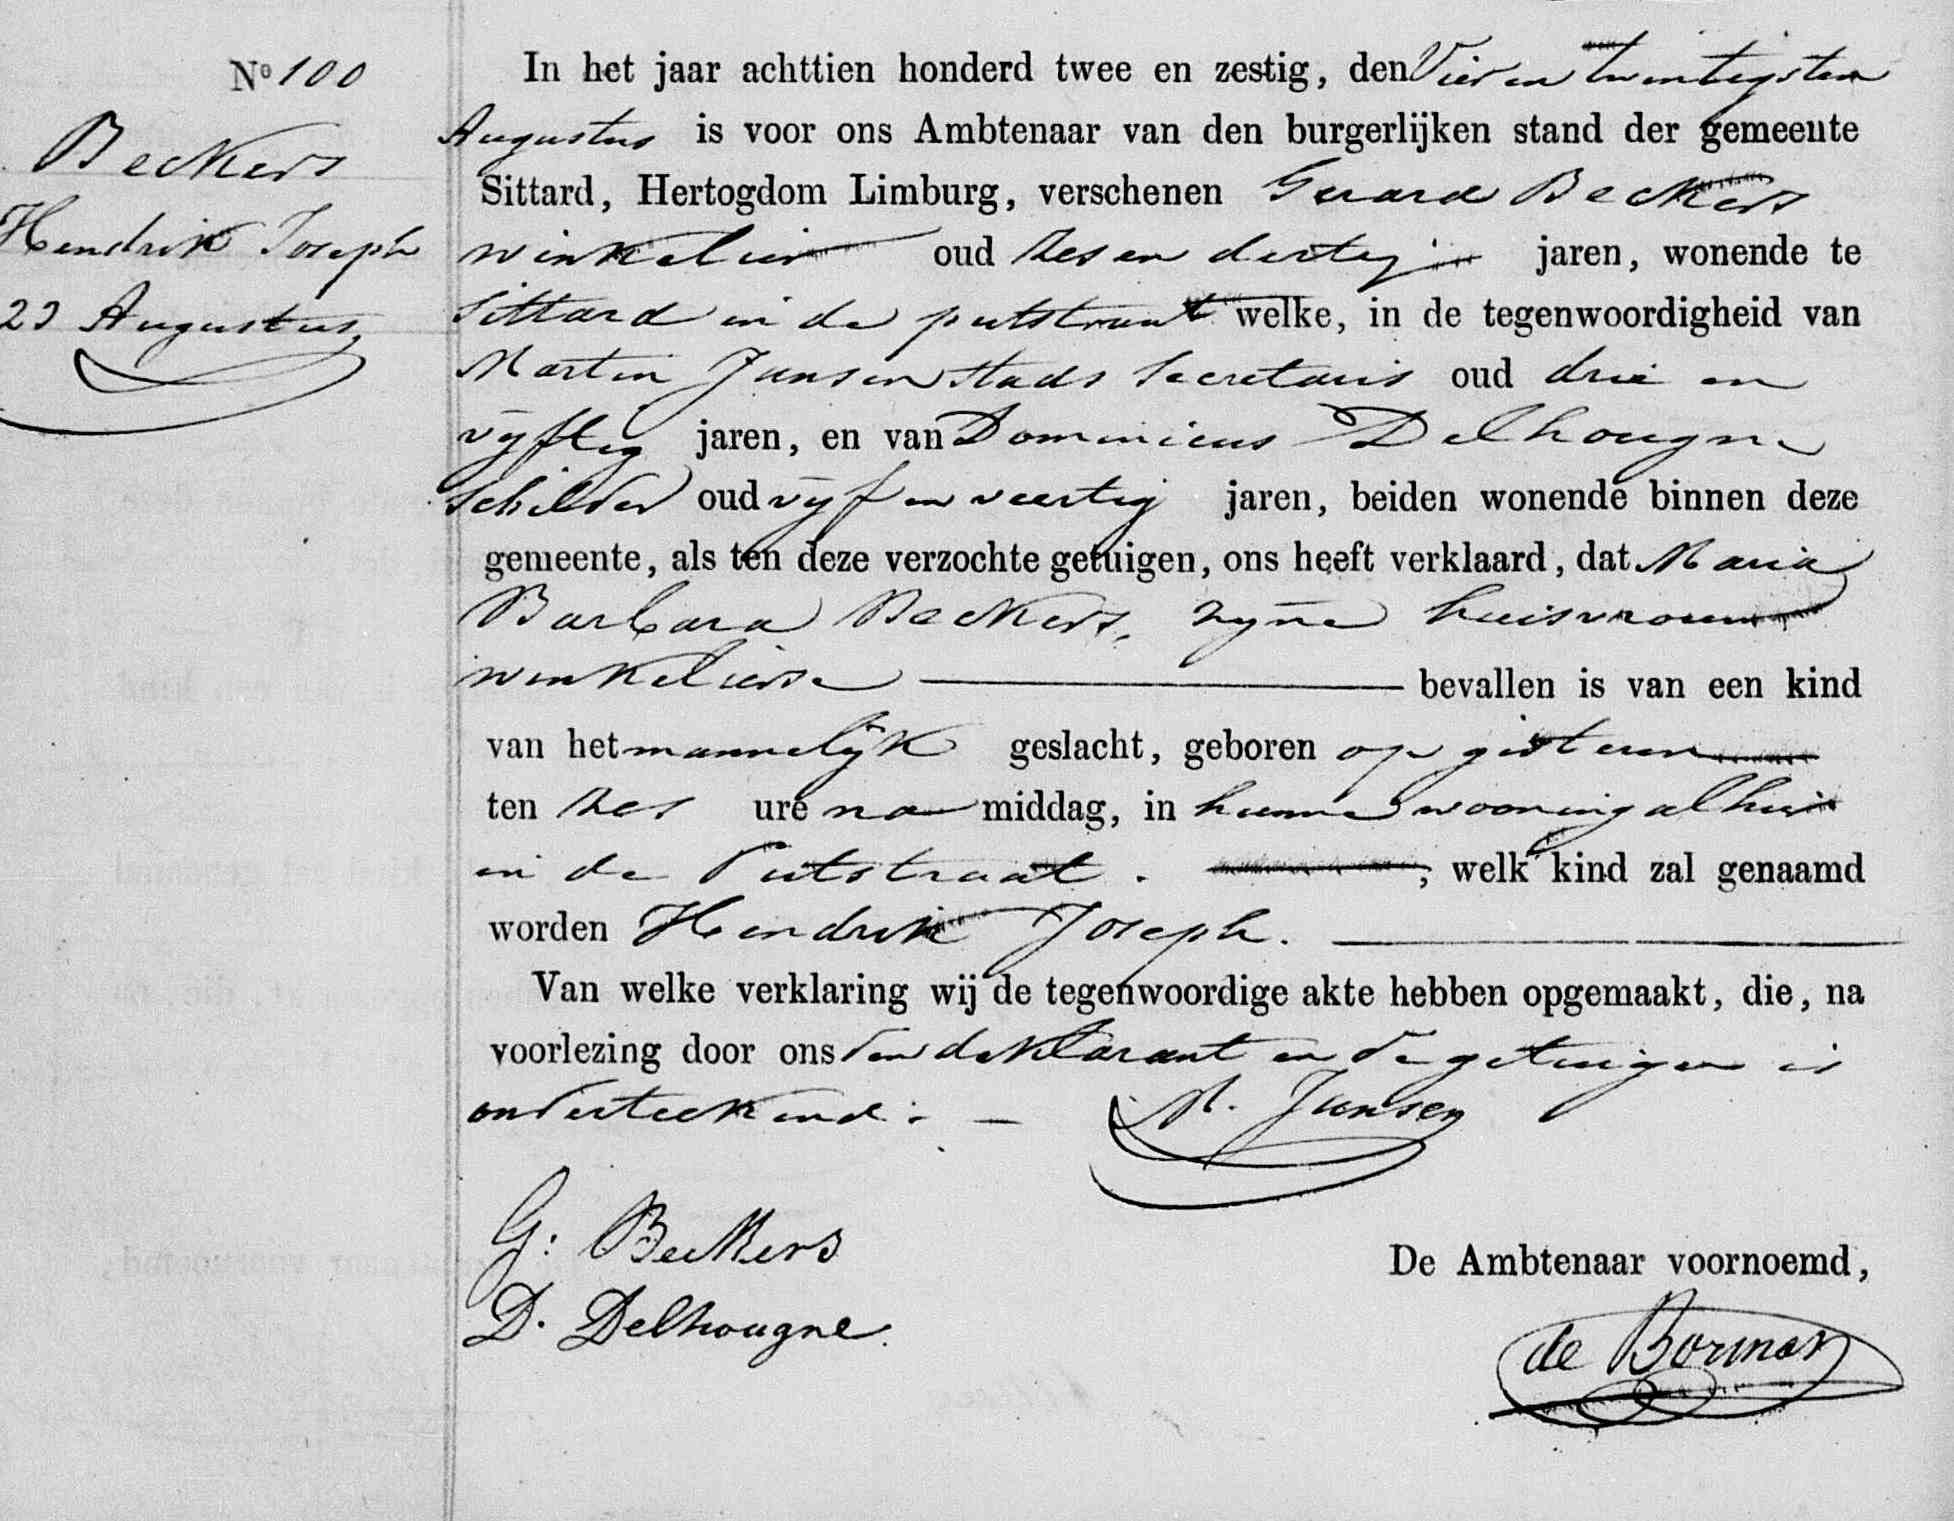 Nº 100
Beckers
Hendrik Joseph
23 Augustus
In het jaar achttien honderd twee en zestig, den Vier en twintigsten
Augustus is voor ons Ambtenaar van den burgerlijken stand der gemeente
Sittard, Hertogdom Limburg, verschenen Gerard Beckers
winkelier oud zes en dertig jaren, wonende te
Sittard in de putstraat welke, in de tegenwoordigheid van
Martin Jansen stads secretaris oud drie en
vijftig jaren, en van Dominicus Delhougne
schilder oud vijf en veertig jaren, beiden wonende binnen deze
gemeente, als ten deze verzochte getuigen, ons heeft verklaard, dat Maria
Barbara Beckers, zijne huisvrouw
winkelierse bevallen is van een kind
van het mannelijk geslacht, geboren op gisteren
ten zes ure na middag, in hunne wooning alhier
in de Putstraat. , welk kind zal genaamd
worden Hendrik Joseph.
Van welke verklaring wij de tegenwoordige akte hebben opgemaakt, die, na
voorlezing door ons den deklarant en de getuigen is
onderteekend. M. Jansen
G: Beckers
D. Delhougne.
De Ambtenaar voornoemd,
de Borman